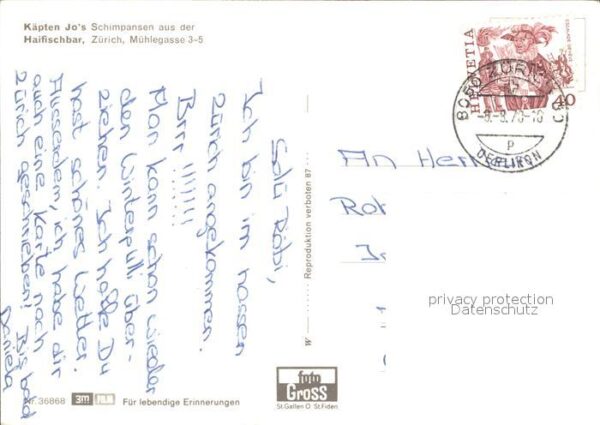 Käpten Jo's Schimpansen aus der
Haifischbar, Zürich, Mühlegasse 3-5
Salü Röbi,
Ich bin im nassen
Zürich angekommen.
Brrr !!!!!!!
Man kann schon wieder
den Winterpulli über-
ziehen. Ich hoffe Du
hast schönes Wetter.
Ausserdem, ich habe dir
auch eine Karte nach
Zürich geschrieben! Bis bald
Daniela
Reproduktion verboten 87
HELVETIA
40
8050 ZÜRICH
OERLIKON
P
An Herrn
privacy protection
Datenschutz
Nr. 36868 3m FILM Für lebendige Erinnerungen
foto
GROSS
St.Gallen O St.Fiden